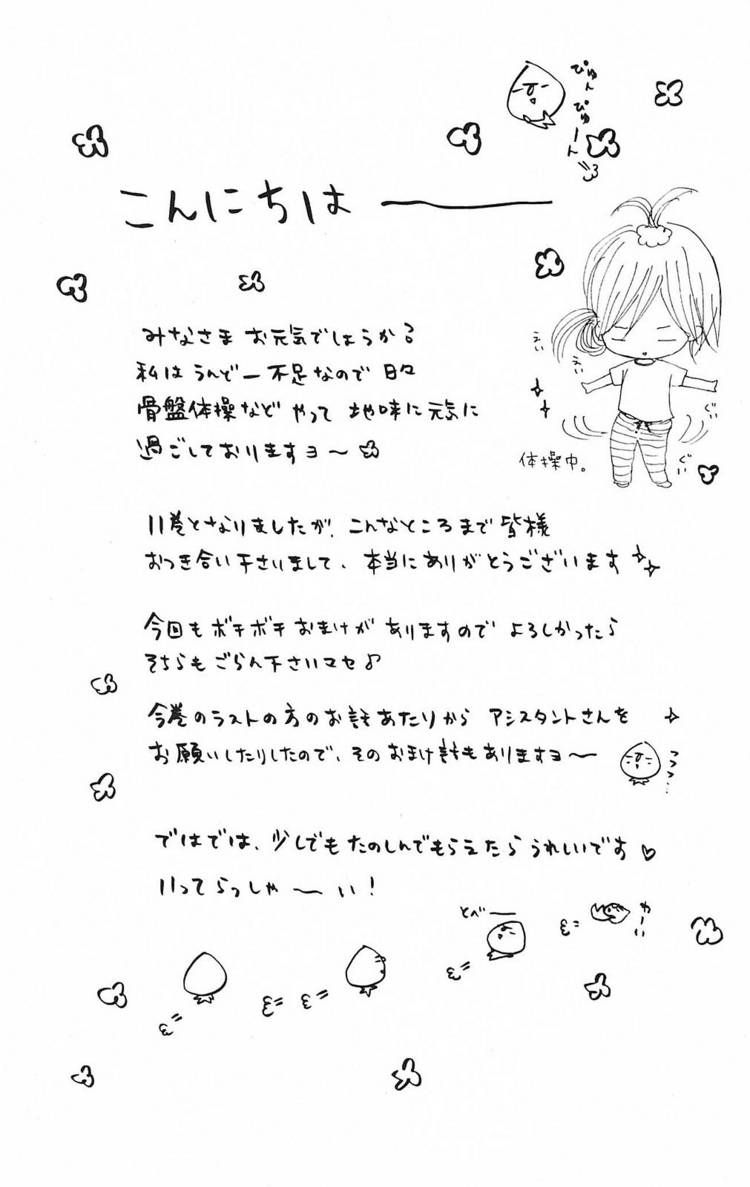 ぴゅんぴゅーん
こんにちは――
みなさま お元気でしょうか?
私は うんどー不足なので 日々
骨盤体操など やって 地味に元気に
過ごしておりますヨ〜
えい
えい
ぐい
ぐい
体操中。
11巻となりましたが、こんなところまで 皆様
おつき合い下さいまして、本当にありがとうございます
今回も ボチボチ おまけが ありますので よろしかったら
そちらも ごらん下さいマセ♪
今巻のラストの方のお話あたりから アシスタントさんを
お願いしたりしたので、そのおまけ話もありますヨ〜
フフフ…
ではでは、少しでも たのしんでもらえたら うれしいです♡
いってらっしゃ〜い!
とべー
わーい